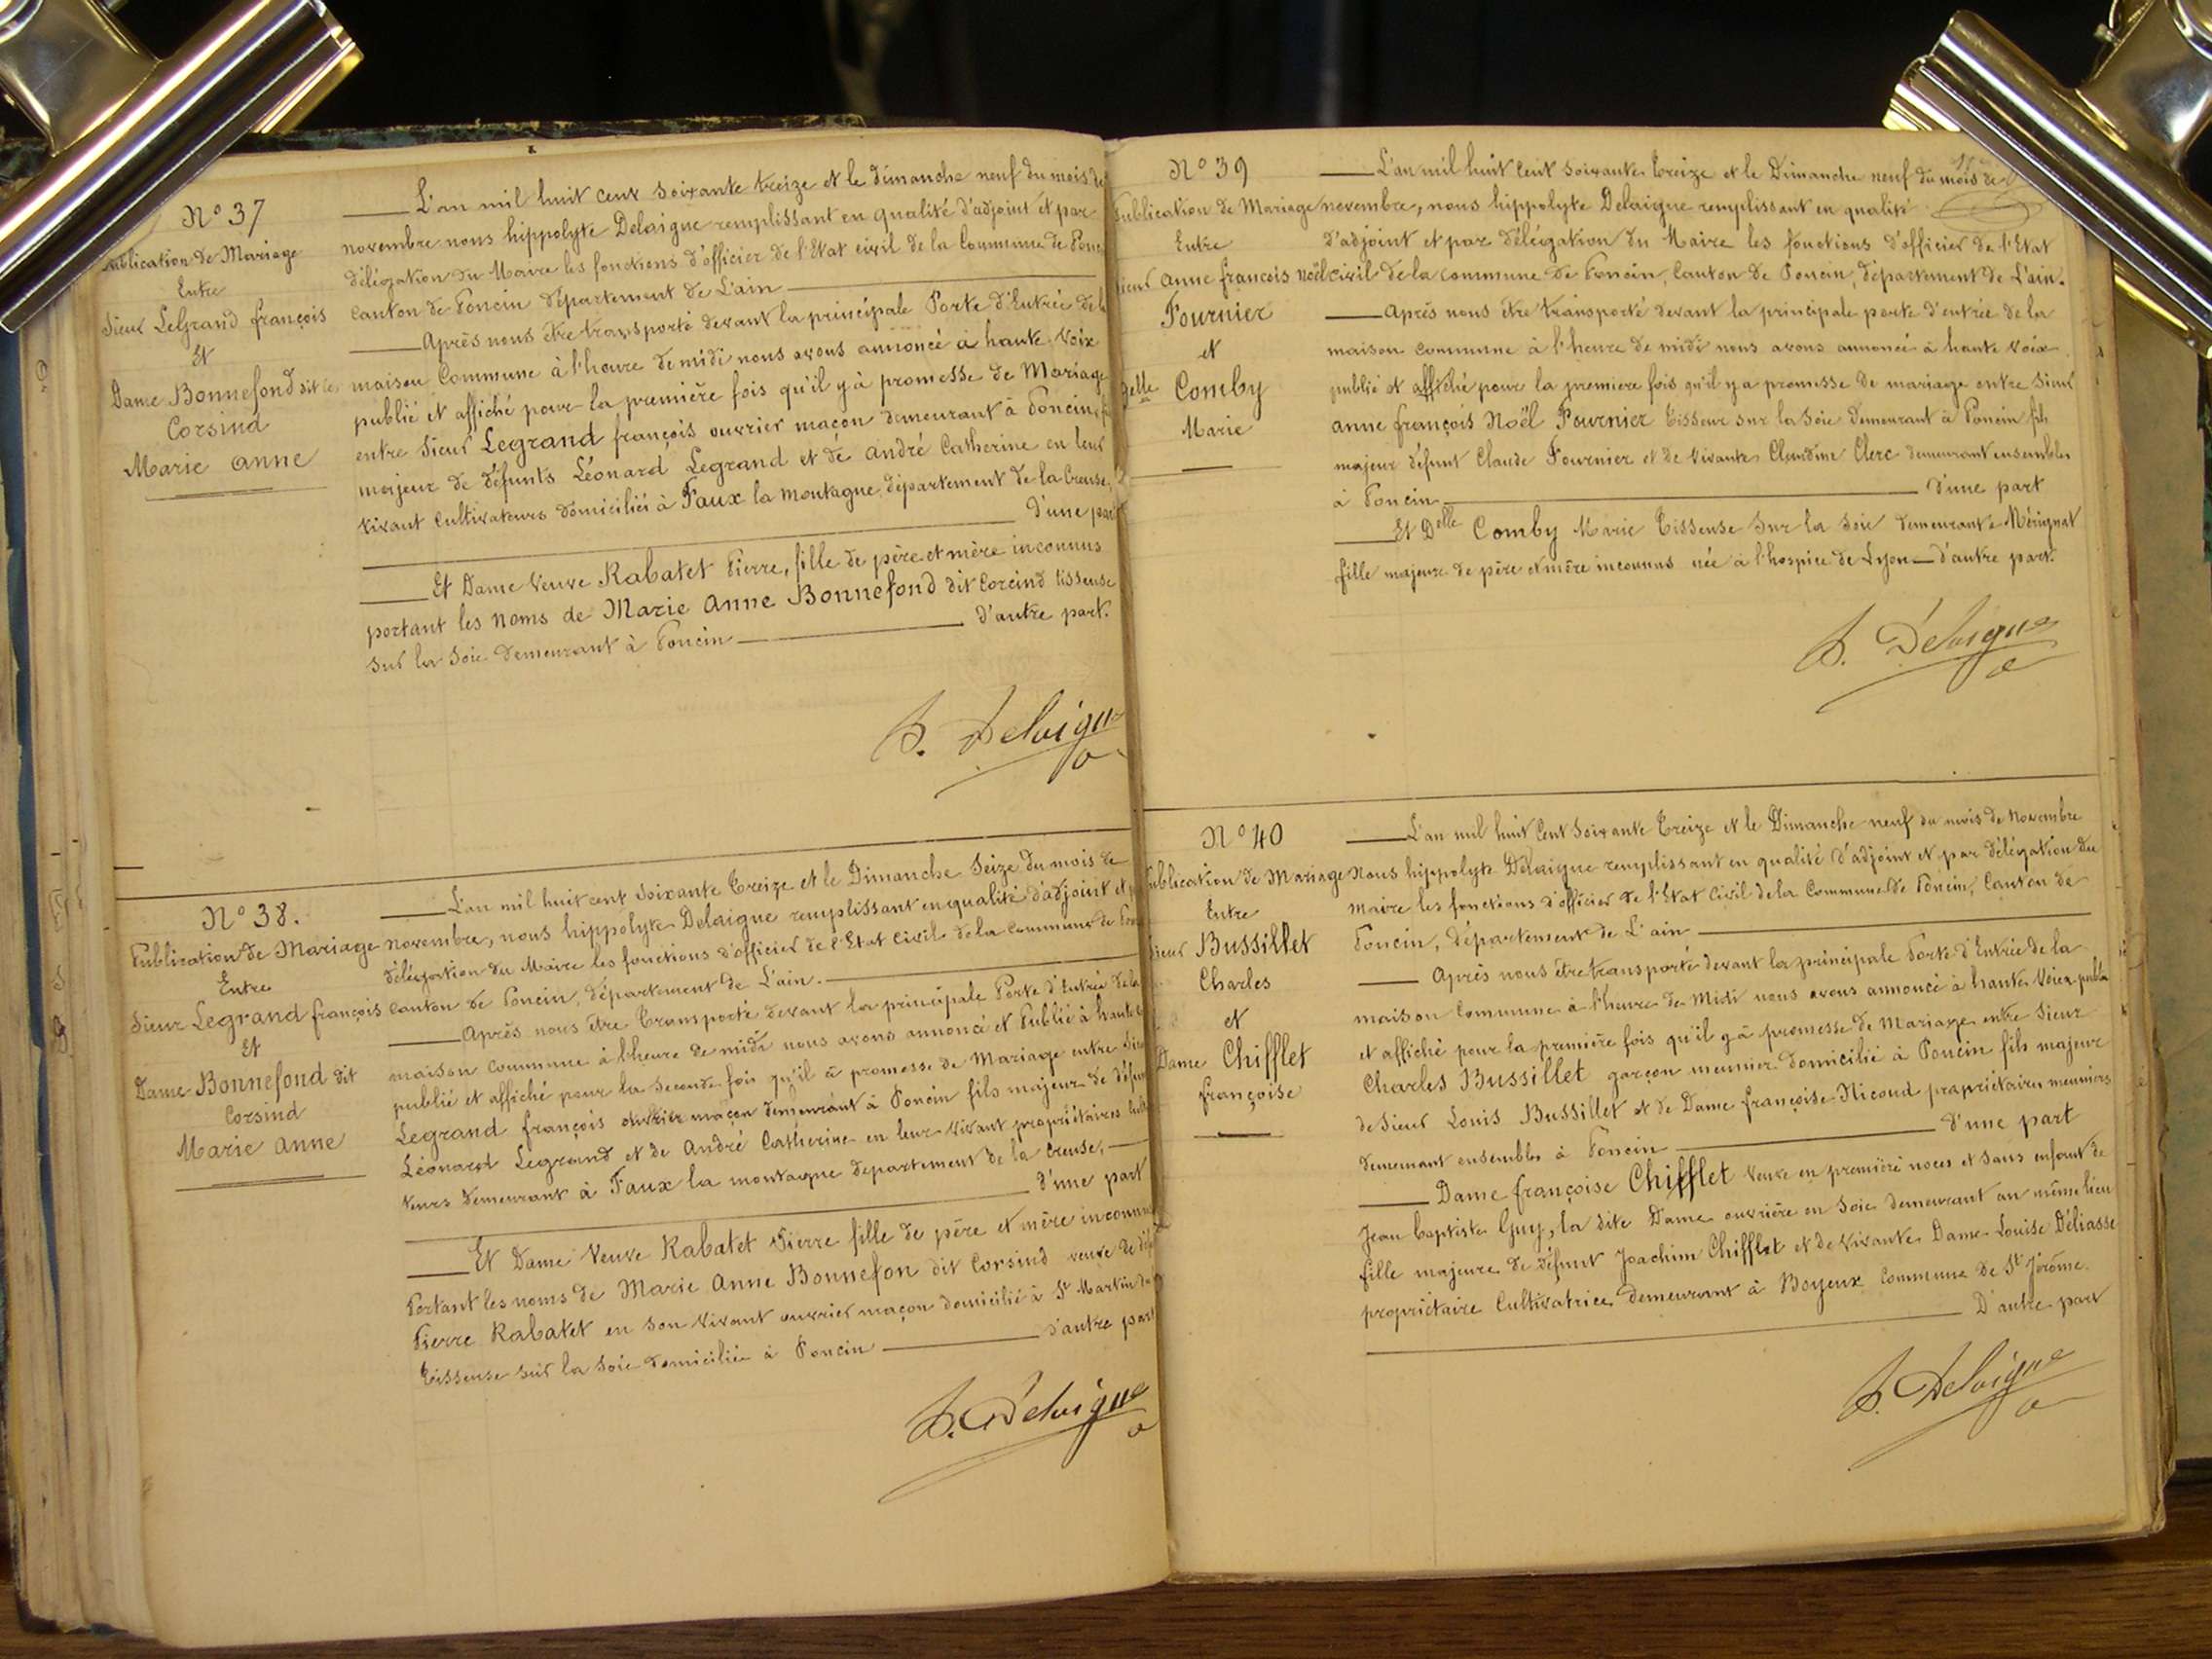 N° 37
Publication de Mariage
Entre
Sieur LeGrand françois
Et
Dame Bonnefond dit
Corsind
Marie anne
L'an mil huit cent soixante treize et le dimanche neuf du mois de
novembre nous hippolyte Delaigue remplissant en qualité d'adjoint et par
délégation du Maire les fonctions d'officier de l'Etat civil de la Commune de Poncin
Canton de Poncin département de L'ain
Après nous être transporté devant la principale Porte d'Entrée de la
maison Commune à l'heure de midi nous avons annoncé à haute Voix
publié et affiché pour la première fois qu'il y à promesse de Mariage
entre Sieur Legrand françois ouvrier maçon demeurant à Poncin, fils
majeur de défunts Léonard Legrand et de andré Catherine en leur
vivant Cultivateurs domiciliés à Faux la montagne, département de la Creuse,
d'une part
Et Dame Veuve Rabatet Pierre, fille de père et mère inconnus
portant les noms de Marie anne Bonnefond dit Corcind tisseuse
sur la soie demeurant à Poncin d'autre part.
h. Delaigue
N° 38.
Publication de Mariage
Entre
Sieur Legrand françois
Et
Dame Bonnefond dit
Corsind
Marie anne
L'an mil huit cent soixante Treize et le Dimanche Seize du mois de
novembre, nous hippolyte Delaigue remplissant en qualité d'adjoint et par
délégation du Maire les fonctions d'officier de l'Etat Civil de la Commune de Poncin
Canton de Poncin, département de L'ain.
Après nous être Transporté devant la principale Porte d'Entrée de la
maison Commune à l'heure de midi nous avons annoncé et Publié à haute
publié et affiché pour la seconde fois qu'il à promesse de Mariage entre Sieur
Legrand françois ouvrier maçon demeurant à Poncin fils majeur de défunt
Léonard Legrand et de André Catherine en leur vivant propriétaires Culti
teurs demeurant à Faux la montagne departement de la Creuse,
d'une part
Et Dame Veuve Rabatet Pierre fille de père et mère inconnus
Portant les noms de Marie Anne Bonnefon dit Corsind veuve de
Pierre Rabatet en son vivant ouvrier maçon domicilié à St Martin
Tisseuse sur la soie domiciliée à Poncin d'autre part
h. Delaigue
N° 39
Publication de Mariage
Entre
Sieur Anne françois Noël
Fournier
et
Delle Comby
Marie
L'an mil huit Cent soixante Treize et le Dimanche neuf du mois de
novembre, nous hippolyte Delaigue remplissant en qualité
d'adjoint et par délégation du Maire les fonctions d'officier de l'Etat
Civil de la commune de Poncin, Canton de Poncin, département de L'ain.
Après nous être transporté devant la principale porte d'entrée de la
maison commune à l'heure de midi nous avons annoncé à haute voix
publié et affiché pour la premiere fois qu'il y a promesse de mariage entre Sieur
anne françois Noël Fournier Tisseur sur la Soie demeurant à Poncin fils
majeur défunt Claude Fournier et de vivante Claudine Clerc demeurant ensembles
à Poncin d'une part
Et Delle Comby Marie Tisseuse Sur la soie demeurant à Mérignat
fille majeure de père et mère inconnus née à l'hospice de Lyon d'autre part.
h. Delaigue
N° 40
Publication de Mariage
Entre
Sieur Bussillet
Charles
et
Dame Chifflet
françoise
L'an mil huit Cent soixante Treize et le Dimanche neuf du mois de novembre
Nous hippolyte Delaigue remplissant en qualité d'adjoint et par délégation du
Maire les fonctions d'officier de l'Etat Civil de la Commune de Poncin, Canton de
Poncin, département de L'ain
Après nous être transporté devant la principale Porte d'Entrée de la
maison Commune à l'heure de Midi nous avons annoncé à haute Voix publié
et affiché pour la première fois qu'il y à promesse de Mariage entre Sieur
Charles Bussillet garçon meunier domicilié à Poncin fils majeur
de Sieur Louis Bussillet et de Dame françoise Nicoud propriétaires meuniers
demeurant ensembles à Poncin d'une part
Dame françoise Chifflet Veuve en première noces et sans enfant de
Jean baptiste Guy, la dite Dame ouvrière en Soie demeurant au même lieu
fille majeure de défunt Joachim Chifflet et de Vivante Dame Louise Déliasse
propriétaire Cultivatrice, demeurant à Boyeux Commune de St Jérôme.
D'autre part
h. Delaigue